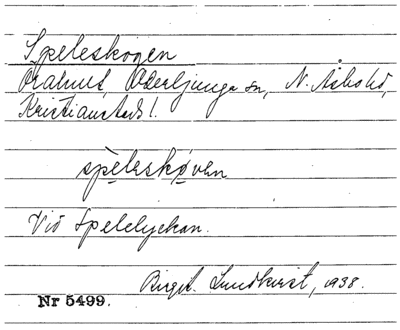 Speleskogen
Oralund, Oderljunga sn, N. Åsbo hd,
Kristianstads l.
spèleskǫven
Vid Spelelyckan.
Birgit Lundkvist, 1938.
Nr 5499.